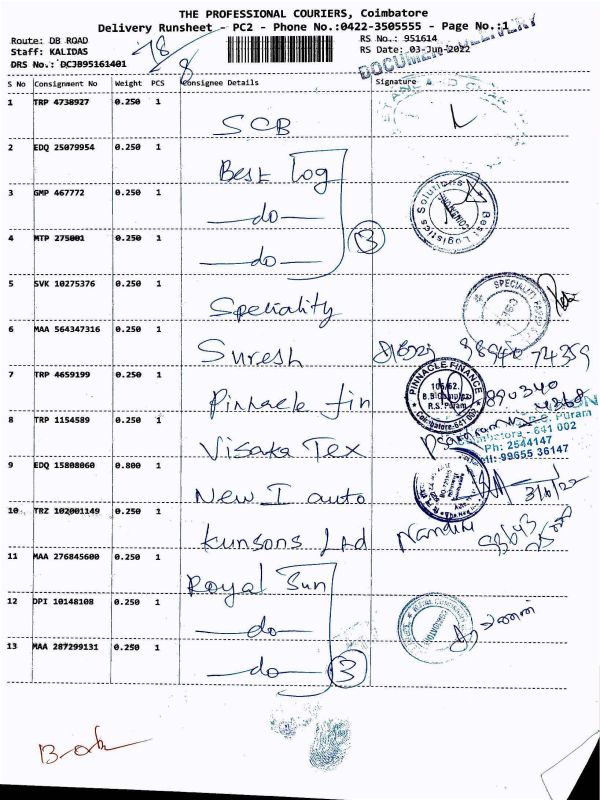 THE PROFESSIONAL COURIERS, Coimbatore
Delivery Runsheet - PC2 - Phone No.:0422-3505555 - Page No.:1
Route: DB ROAD RS No.: 951614
Staff: KALIDAS RS Date: 03-Jun-2022
DRS No.: DCJB95161401
S No Consignment No Weight PCS Consignee Details Signature
1 TRP 4738927 0.250 1
SCB
2 EDQ 25079954 0.250 1
Best Log
3 GMP 467772 0.250 1
do
4 MTP 275001 0.250 1
do 3
5 SVK 10275376 0.250 1
Speciality
6 MAA 564347316 0.250 1
Suresh 98940 74359
7 TRP 4659199 0.250 1
Pinnacle fin
PINNACLE FINANCE
B.B.Complex
R.S. Puram
Coimbatore
8 TRP 1154589 0.250 1
Visaka Tex
Coimbatore - 641 002
Ph: 2544147
Cell: 99655 36147
9 EDQ 15808060 0.800 1
New I auto 3/6/22
10 TRZ 102001149 0.250 1
Kunsons Ltd
11 MAA 276845600 0.250 1
Royal Sun
12 DPI 10148108 0.250 1
do
13 MAA 287299131 0.250 1
do 3